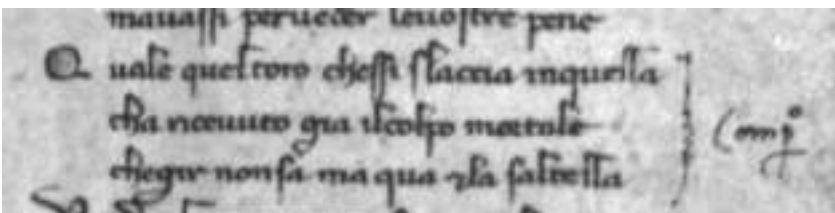 mavassi perueder leuostre pene
Quale quel toro chessi slaccia inquella
cha riceuuto gia ilcolpo mortale
chegir non sa ma qua ⁊la saltella